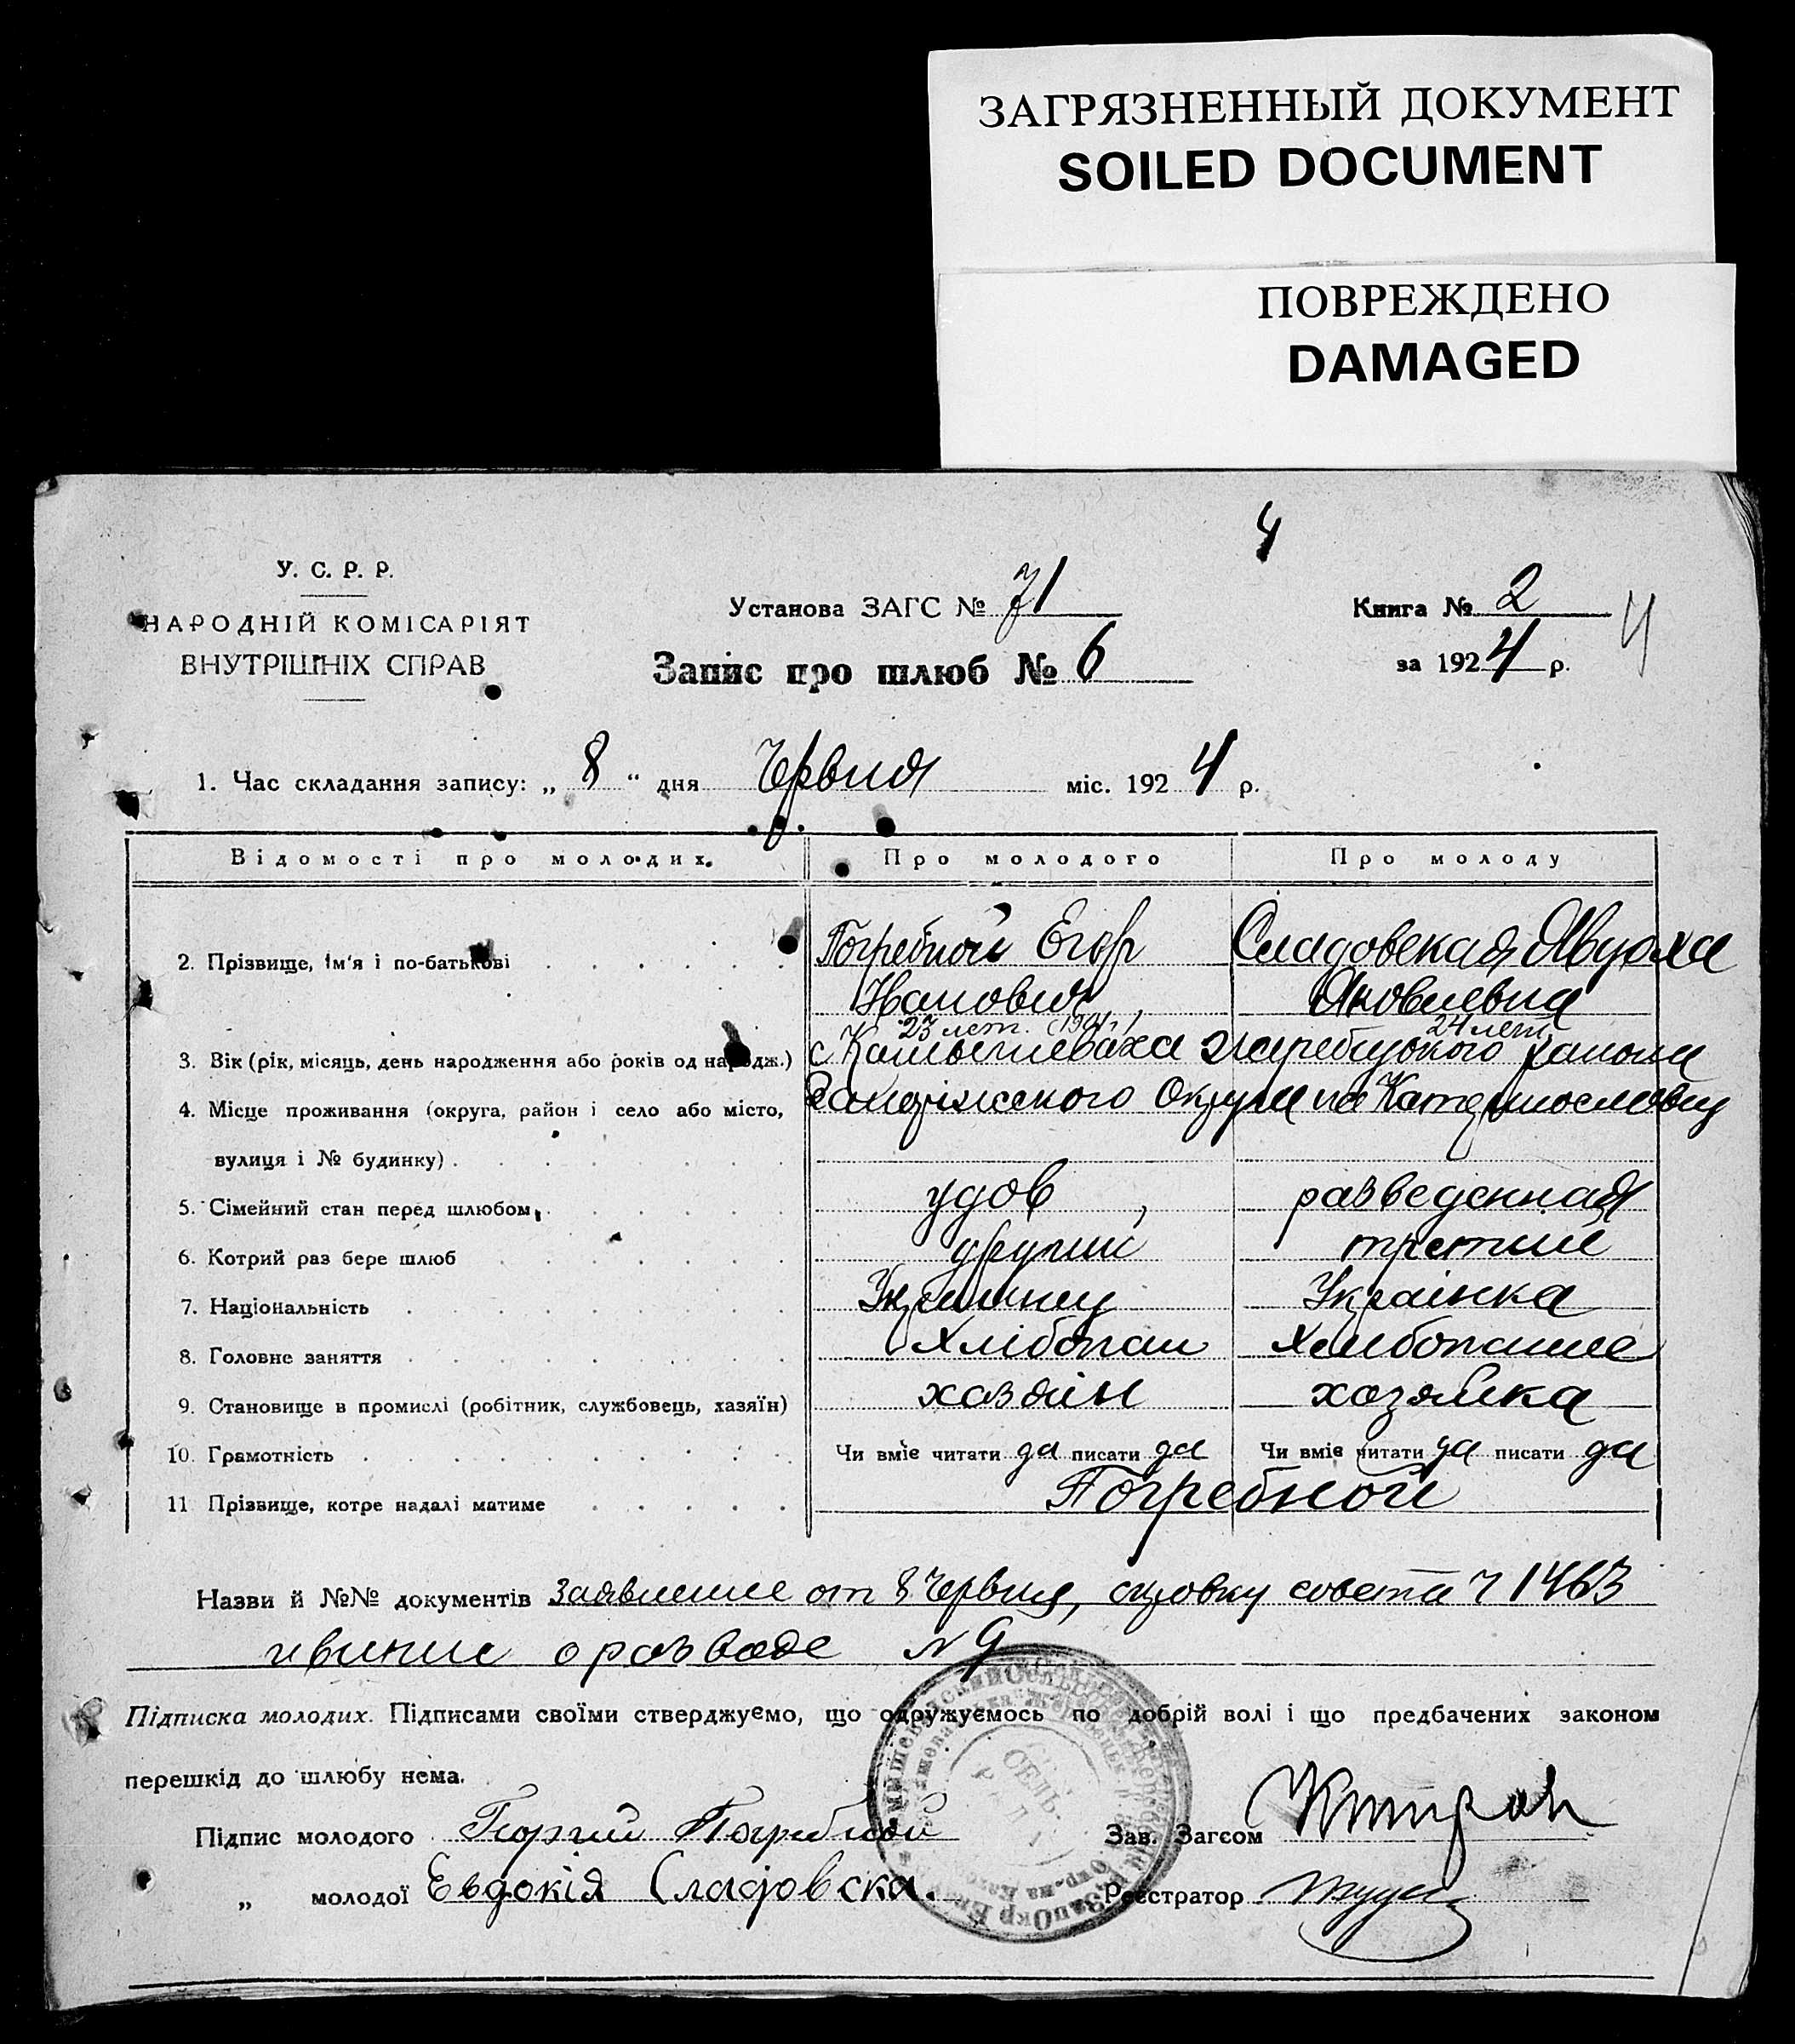 ЗАГРЯЗНЕННЫЙ ДОКУМЕНТ
SOILED DOCUMENT
ПОВРЕЖДЕНО
DAMAGED
4
У. С. Р. Р.
НАРОДНІЙ КОМІСАРІЯТ
ВНУТРІШНІХ СПРАВ
Установа ЗАГС № 71
Запис про шлюб № 6
Книга № 2
за 1924 р.
4
1. Час складання запису: „ 8 “ дня Червня міс. 1924 р.
Відомості про молодих. Про молодого Про молоду
2. Прізвище, ім'я і по-батькові Погребной Егор Сладовская Явдоха
Иванович, Яковлевна
23 лет. 24 лет
3. Вік (рік, місяць, день народження або років од народж.) с Камышеваха Жеребцовского района
4. Місце проживання (округа, район і село або місто, Запоріжского Округи на Катеринославщ
вулиця і № будинку)
5. Сімейний стан перед шлюбом, удов, разведенная
6. Котрий раз бере шлюб другий третий
7. Національність Українец Українка
8. Головне заняття Хлібопаш Хлибопашие
9. Становище в промислі (робітник, службовець, хазяїн) хазяїн хозяйка
10. Грамотність Чи вміє читати да писати да Чи вміє читати да писати да
11 Прізвище, котре надалі матиме Погребной
Назви й №№ документів Заявление от 8 Червня, совета 1463
о разводе № 9
Підписка молодих. Підписами своїми стверджуємо, що одружуємось по добрій волі і що предбачених законом
перешкід до шлюбу нема.
Підпис молодого Георгий Погребной
Зав. Загсом
„ молодої Евдокія Сладовска.
Реєстратор
СЕЛЬ.